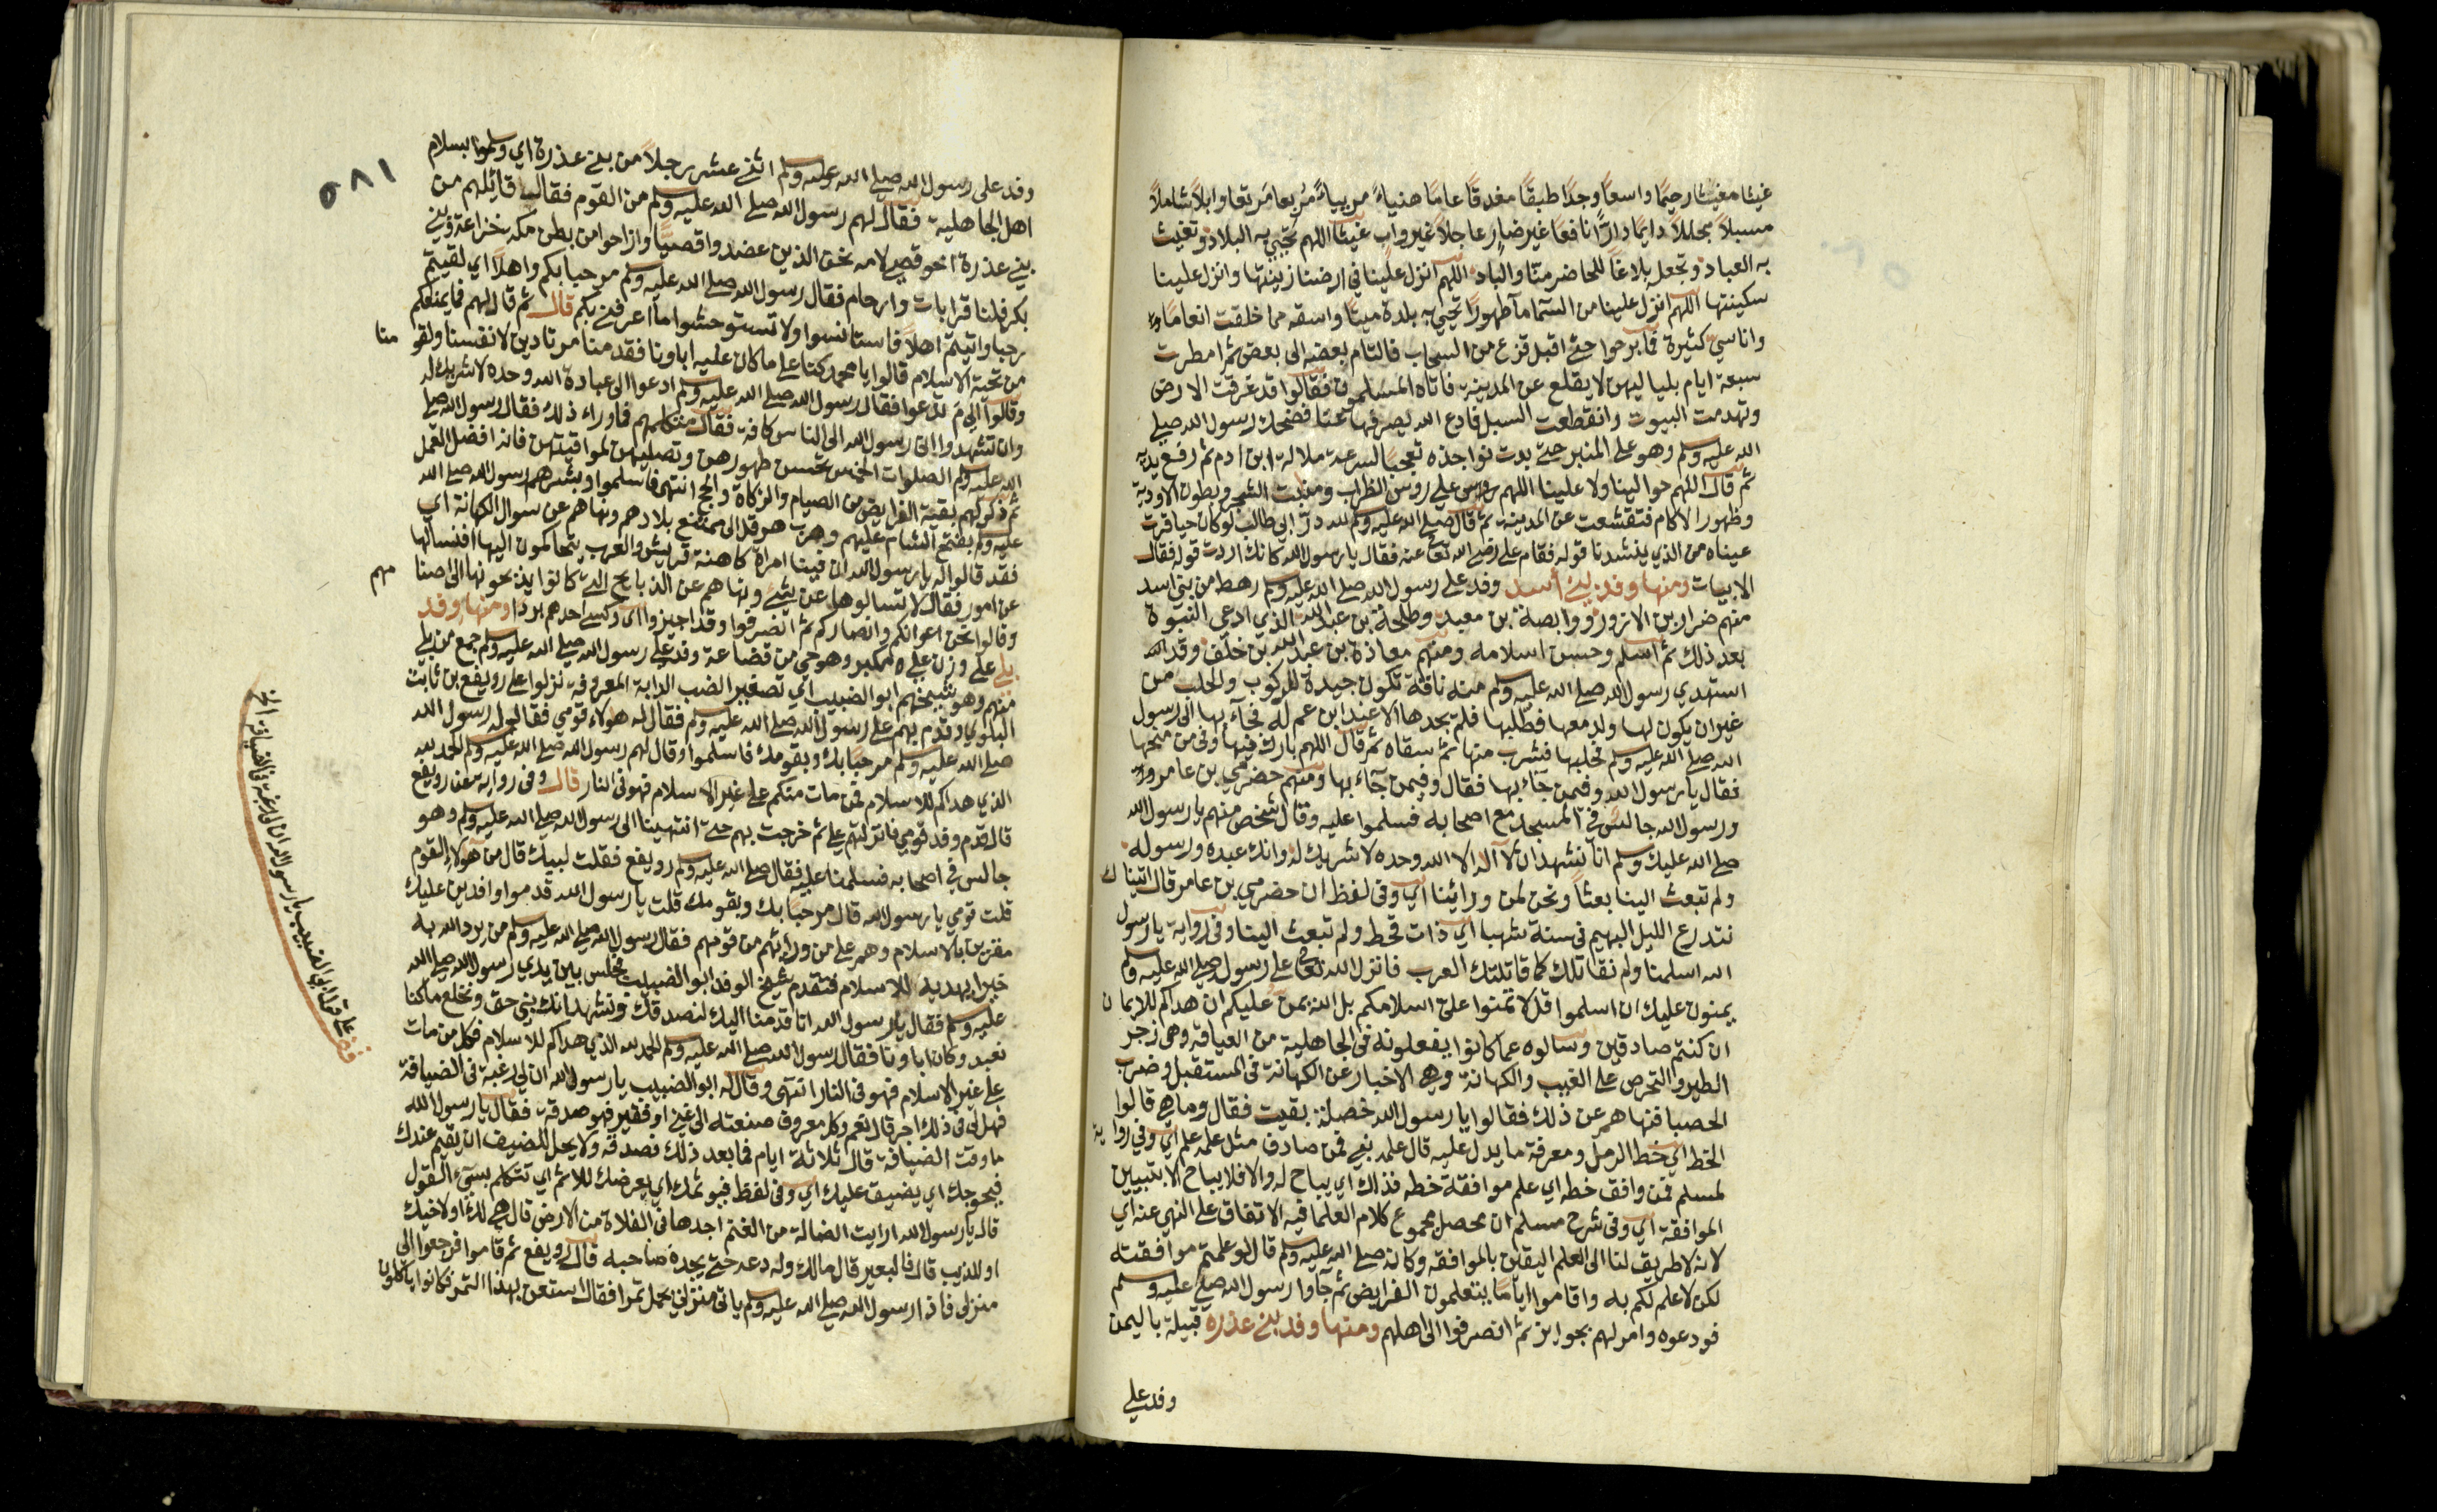 غيثا مغيثا رحيمًا واسعًا وجدًا طبقًا مغدقًا عامًا هنياءً مريياءً مُربعا مرتعا وابلًا شاملاً
مسبلاً مجللاً دايمًا دارًّا نافعًا غير ضار عاجلاً غير راب غيثا اللهم تحيي به البلاد وتغيث
به العباد وتجعله بلاغًا للحاضر منّا والباد اللهم انزل علينا في ارضنا زينتها وانزل علينا
سكينتها اللهم انزل علينا من السّماء مآءً طهورًا تحيي به بلدة ميتًا واسقه مما خلقت انعامًا
واناسيّ كثيرة فما برحوا حتى اقبل قزع من السحاب فالتام بعضه الى بعض ثم امطرت
سبعة ايام بلياليهن لا يقلع عن المدينة فاتاه المسلمون فقالوا قد غرقت الارض
وتهدمت البيوت وانقطعت السبل فادع الله يصرفها عنّا فضحك رسول الله صلى
الله عليه وسلم وهو على المنبر حتى بدت نواجذه تعجبًا لسرعة ملالة ابن ادم ثم رفع يديه
ثم قال اللهم حوالينا ولا علينا اللهم على روس الظراب ومنبت الشجر وبطون الاودية
وظهور الاكام فتقشعت عن المدينة ثم قال صلى الله عليه وسلم لله درّ ابي طالب لو كان حيا قرت
عيناه من الذي ينشدنا قوله فقام علي رضي الله تعالى عنه فقال يا رسول الله كانك اردت قوله فقال
الابيات ومنها وفد بني أسد وفد على رسول الله صلى الله عليه وسلم رهط من بني اسد
منهم ضرار بن الازور ووابصة بن معبد وطلحة بن عبد الله الذي ادعى النبوة
بعد ذلك ثم اسلم وحسن اسلامه ومنهم معاذة بن عبد الله بن خلف وقد
استهدي رسول الله صلى الله عليه وسلم منه ناقة تكون جيدة للركوب والحلب من
غير ان يكون لها ولد معها فطلبها فلم يجدها الا عند ابن عم له فجآء بها الى رسول
الله صلى الله عليه وسلم فحلبها فشرب منها ثم سقاه ثم قال اللهم بارك فيها وفي من منحها
فقال يا رسول الله وفيمن جآء بها فقال وفيمن جآء بها ومنهم حضرمي بن عامر
ورسول الله جالس في المسجد مع اصحابه فسلموا عليه وقال شخص منهم يا رسول الله
صلى الله عليك وسلم انا نشهد ان لا اله الا الله وحده لا شريك له وانك عبده ورسوله
ولم تبعث الينا بعثًا ونحن لمن ورائنا اي وفي لفظ ان حضرمي بن عامر قال اتيناك
نتدرع الليل البهيم في سنة شهبا اي ذات قحط ولم تبعث الينا وفي رواية يا رسول
الله اسلمنا ولم نقاتلك كما قاتلتك العرب فانزل الله تعالى على رسوله صلى الله عليه وسلم
يمنون عليك ان اسلموا قل لا تمنوا على اسلامكم بل الله يمن عليكم ان هداكم للايمان
ان كنتم صادقين وسالوه عما كانوا يفعلونه في الجاهلية من العيافة وهي زجر
الطير والتخرص على الغيب والكهانة وهي الاخبار عن الكهانة في المستقبل وضرب
الحصبا فنهاهم عن ذلك فقالوا يا رسول الله خصلة بقيت فقال وما هي قالوا
الخط اي خط الرمل ومعرفة ما يدل عليه قال علمه نبي فمن صادف مثل علمه علم اي وفي رواية
لمسلم فمن وافق خطه اي علم موافقة خطه فذاك اي يباح له والا فلا يباح الا بتبيين
الموافقة اي وفي شرح مسلم ان محصل مجموع كلام العلما فيه الاتفاق على النهي عنه اي
لانه لا طريق لنا الى العلم اليقين بالموافقه وكانه صلى الله عليه وسلم قال لو علمتم موافقته
لكن لا علم لكم به واقاموا ايامًا يتعلمون الفرايض ثم جآوا رسول الله صلى عليه وسلم
فودعوه وامر لهم بجوايز ثم انصرفوا الى اهلهم ومنها وفد بني عذره قبيلة باليمن
وفد على
٥٨١
وفد على رسول الله صلى الله عليه وسلم اثني عشر رجلاً من بني عذرة اي وسلموا بسلام
اهل الجاهلية فقال لهم رسول الله صلى الله عليه وسلم من القوم فقال قائلهم من
بني عذرة اخو قصي لامه نحن الذين عضدوا قصيًّا وازاحوا من بطن مكه خزاعة وبني
بكر فلنا قرابات وارحام فقال رسول الله صلى الله عليه وسلم مرحبا بكم واهلًا اي لقيتم
رحبا واتيتم اهلاً فاستانسوا ولا تستوحشوا ما اعرفني بكم قال ثم قال لهم فما يمنعكم
من تحية الاسلام قالوا يا محمد كنا على ما كان عليه اباونا فقدمنا مرتادين لانفسنا ولقومنا
وقالوا الى مَ تدعوا فقال رسول الله صلى الله عليه وسلم ادعوا الى عبادة الله وحده لا شريك له
وان تشهدوا اني رسول الله الى الناس كافة فقال متكلمهم فما وراء ذلك فقال رسول الله صلى
الله عليه وسلم الصلوات الخمس تحسن طهورهن وتصليهن لمواقيتهن فانه افضل العمل
ثم ذكر لهم بقية الفرايض من الصيام والزكاة والحج انتهى فاسلموا وبشرهم رسول الله صلى الله
عليه وسلم بفتح الشام عليهم وهرب هرقل الى ممتنع بلادهم ونهاهم عن سوال الكهانة اي
فقد قالوا له يا رسول الله ان فينا امراة كاهنة قريش والعرب يتحاكمون اليها افنسالها
عن امور فقال لا تسالوها عن شئ ونهاهم عن الذبايح التي كانوا يذبحونها الى اصنامهم
وقالوا نحن اعوانكم وانصاركم ثم انصرفوا وقد اجيزوا اي وكسى احدهم بردا ومنها وفد
بلي على وزن علي مكبر وهو حي من قضاعة وفد على رسول الله صلى الله عليه وسلم جمع من بلي
منهم وهو شيخهم ابو الضبيب اي تصغير الضب الدابة المعروفة نزلوا على رويفع بن ثابت
البلوي وقدم بهم على رسول الله صلى الله عليه وسلم فقال له هولاء قومي فقال له رسول الله
صلى الله عليه وسلم مرحبًا بك وبقومك فاسلموا وقال لهم رسول الله صلى الله عليه وسلم الحمد لله
الذي هداكم للاسلام فمن مات منكم على غير الاسلام فهو في النار قال وفي رواية عن رويفع
قال قدم وفد قومي فانزلتهم علي ثم خرجت بهم حتى انتهينا الى رسول الله صلى الله عليه وسلم وهو
جالس في اصحابه فسلمنا عليه فقال صلى الله عليه وسلم رويفع فقلت لبيك قال من هولاء القوم
قلت قومي يا رسول الله قال مرحبًا بك وبقومك قلت يا رسول الله قدموا وافدين عليك
مقرين بالاسلام وهم على من ورائهم من قومهم فقال رسول الله صلى الله عليه وسلم من يرد الله به
خيرا يهديه للاسلام فتقدم شيخ الوفد ابو الضبيب فجلس بين يدي رسول الله صلى الله
عليه وسلم فقال يا رسول الله انا قدمنا اليك لنصدقك ونشهد انك نبي حق ونخلع ما كنا
نعبد وكان اباونا فقال رسول الله صلى الله عليه وسلم الحمد لله الذي هداكم للاسلام فكل من مات
على غير الاسلام فهو في النار انتهى وقال له ابو الضبيب يا رسول الله ان لي رغبة في الضيافة
فهل لي في ذلك اجر قال نعم وكل معروف صنعته الى غني او فقير فهو صدقة فقال يا رسول الله
ما وقت الضيافة قال ثلاثة ايام فما بعد ذلك فصدقه ولا يحل للضيف ان يقيم عندك
فيحوجك اي يضيق عليك اي وفي لفظ فيوثمك اي يعرضك للاثم اي تتكلم بسيّء القول
قال يا رسول الله ارايت الضالة من الغنم اجدها في الفلاة من الارض قال هي لك او لاخيك
او للذيب قال فالبعير قال مالك وله دعه حتى يجده صاحبه قال رويفع ثم قاموا فرجعوا الى
منزلي فاذا رسول الله صلى الله عليه وسلم ياتي منزلي يحمل تمرا فقال استعن بهذا التمر فكانوا ياكلون
قف على قول ابو الضبيب يا رسول الله ان لي رغبة في الضيافة الخ